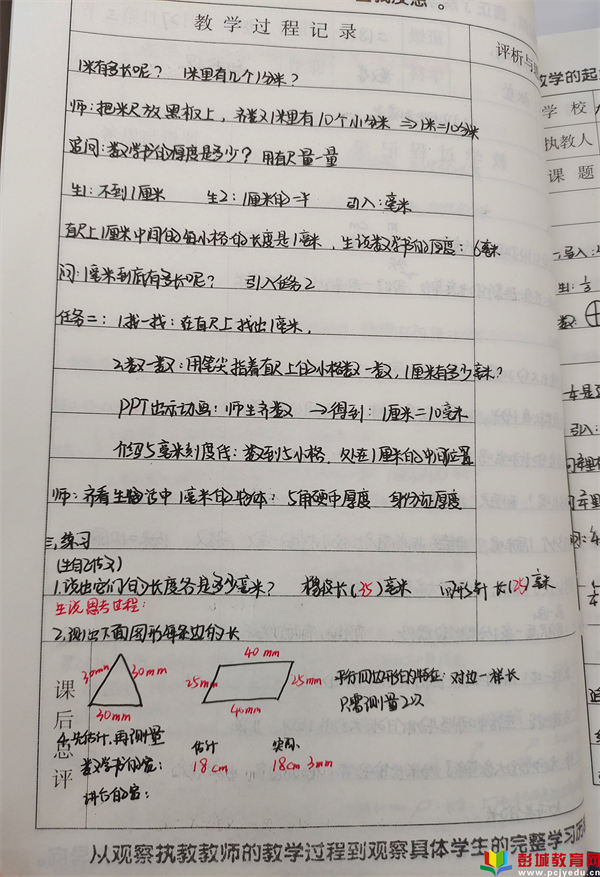 教学过程记录
评析与
1米有多长呢? 1米里有几个1分米?
师:把米尺放黑板上,齐数1米里有10个小分米 ⇒1米=10分米
追问:数学书的厚度是多少?用直尺量一量
生1:不到1厘米 生2:1厘米的一半 引入:毫米
直尺上1厘米中间的每小格的长度是1毫米,生说数学书的厚度:6毫米
问:1毫米到底有多长呢? 引入任务2
任务二:1.找一找:在直尺上找出1毫米.
2.数一数:用笔尖指着直尺上的小格数一数,1厘米有多少毫米?
PPT出示动画:师生齐数 →得到:1厘米=10毫米
介绍5毫米刻度线:数到5小格,处在1厘米的中间位置
师:齐看生活中1毫米的物体:5角硬币厚度 身份证厚度
三、练习
1.说出它们的长度各是多少毫米? 橡皮长(35)毫米 回形针长(25)毫米
生说思考过程:
2.测出下面图形每条边的长
40mm
30mm 30mm 25mm 25mm
30mm 40mm
平行四边形的特征:对边一样长
只需测量2次
课后总评
4.先估计,再测量 估计 实际
数学书的宽: 18cm 18cm 3mm
讲台的宽:
从观察执教教师的教学过程到观察具体学生的完整学习历
教学的起
学校
执教人
课题
彭城教育网
www.pcjyedu.cn